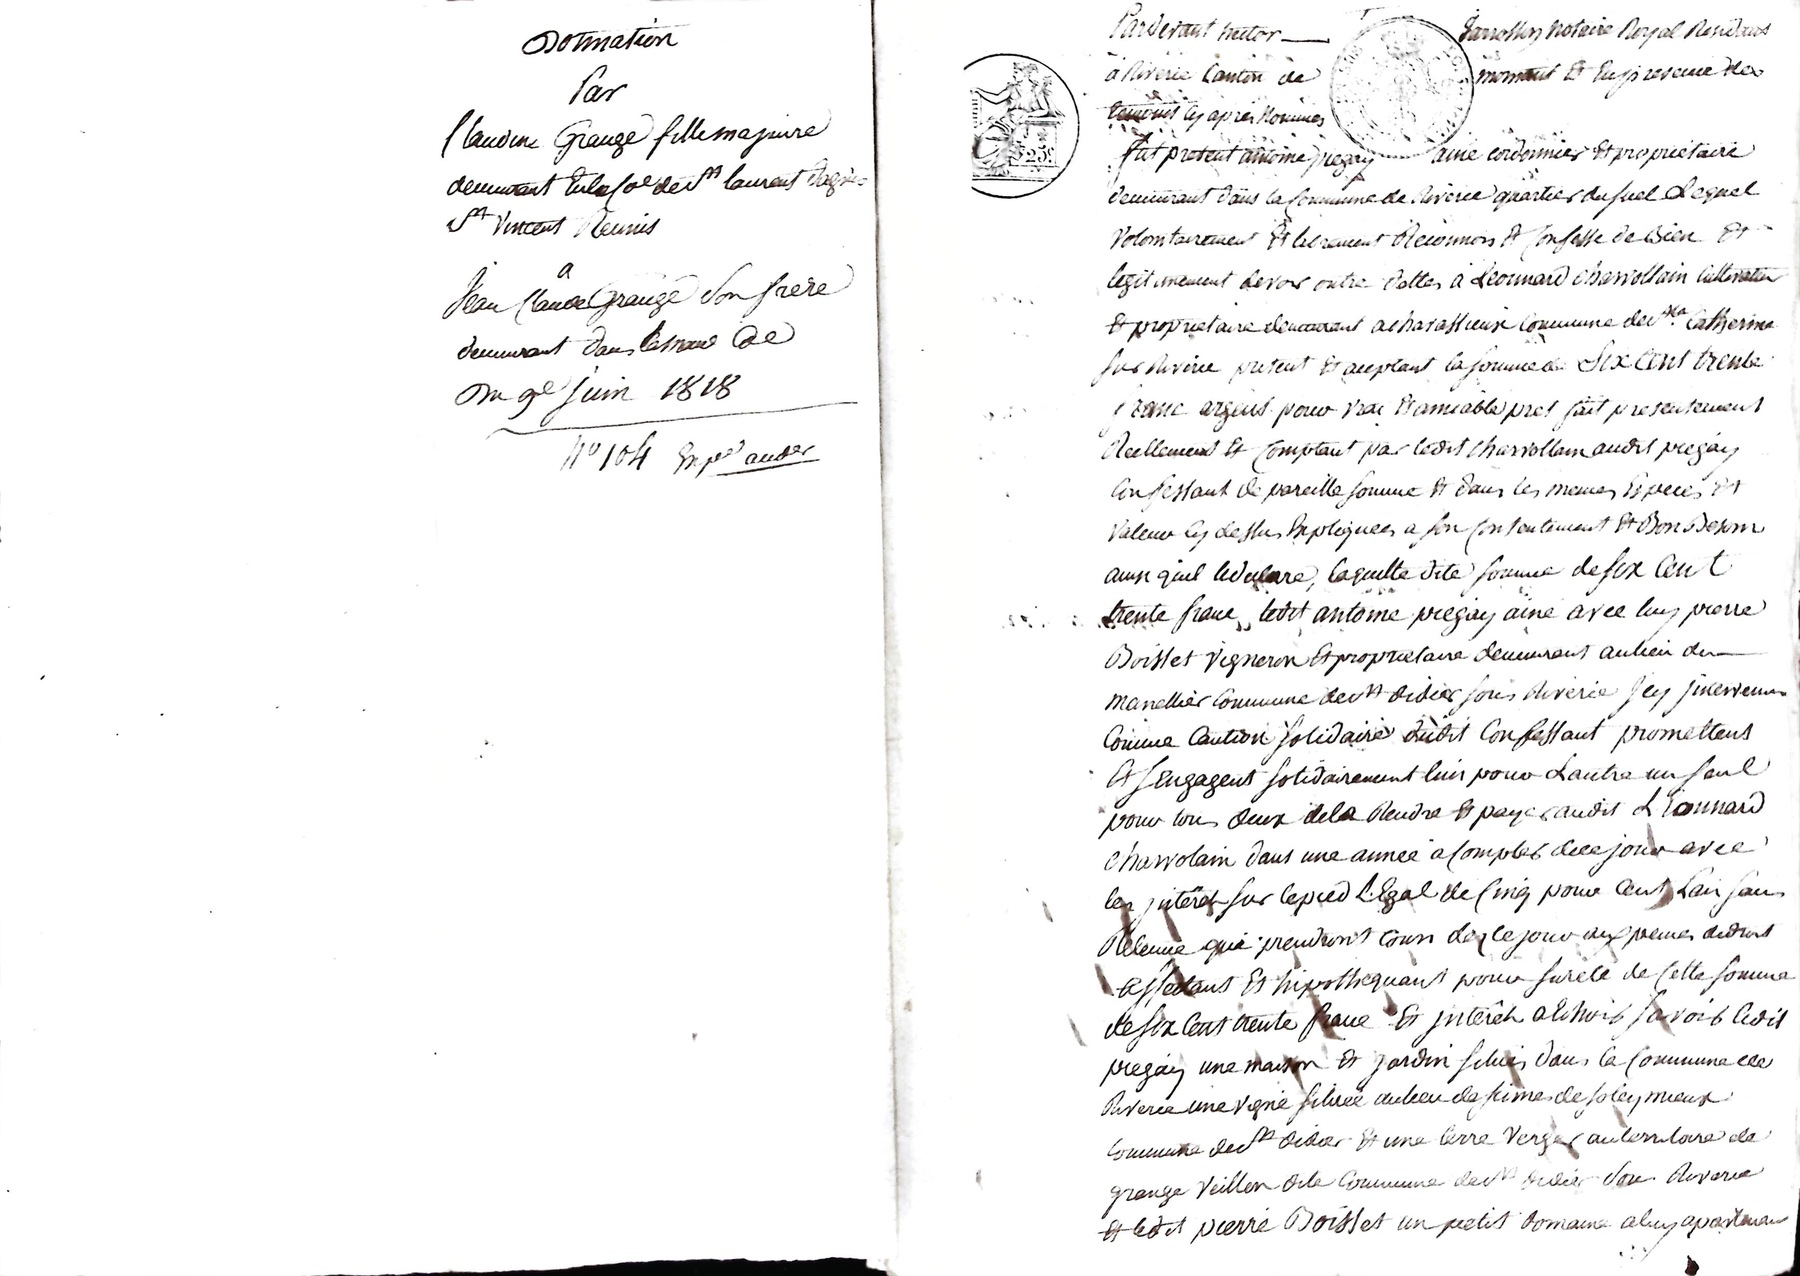 Donnation
Par
Claudine Grange fille majeure
demeurant en la Cne de St laurent Dagny
St Vincent Reunis
a
Jean Claude Grange son frere
demeurant dans la meme Cne
Du 9e Juin 1818
No 104 Expe auder
Pardevant nator Jarrosson Notaire Royal Residant
à Riverie Canton de mornant Et En presence des
temoins cy après Nommés
fut present antoine pregay ainé cordonnier Et proprietaire
demeurant dans la Commune de Riverie quartier du fuel Lequel
Volontairement Et librement Reconnois Et Confesse de Bien Et
legitimement devoir outre dettes à Léonnard Charvollain Cultivateur
Et proprietaire demeurant a chatassieux Commune de Ste Catherine
sur Riverie présent Et acceptant la somme de Six Cent trente
franc argent pour vrai Et amiable pret fait presentement
Reellement Et Comptant par ledit Charvollain audit pregay
Confessant de pareille somme Et dans les memes Especes Et
Valeur cy dessus Expliquées a son Contentement Et Bon Besoin
ainsi qu'il le declare, laquelle dite somme de six Cent
trente franc, ledit antoine pregay ainé avec luy pierre
Boisset Vigneron Et proprietaire demeurant au lieu du
manellier Commune de St didier sous Riverie Jcy Jntervenu
Comme Caution solidaire dudit Confessant promettent
Et s'Engagent solidairement l'un pour L'autre un seul
pour tous deux de la Rendre Et payer audit Léonnard
Charvolain dans une année a Compter de ce jour avec
les jntérêt sur le pied LEgal de Cinq pour Cent L'an sans
Retenue qui prendront Cours dez ce jour aux peines de droit
affectant Et hipothequant pour sureté de Cette somme
de six Cent trente franc Et jntérêt a Echoir savoir ledit
pregay une maison Et jardin situés dans la Commune de
Riverie une vigne située au lieu des fimes de soleymieux
Commune de St didier Et une terre Verger au territoire de
grange Veillon dite Commune de St didier sous Riverie
Et ledit pierre Boisset un petit domaine a luy apartenans